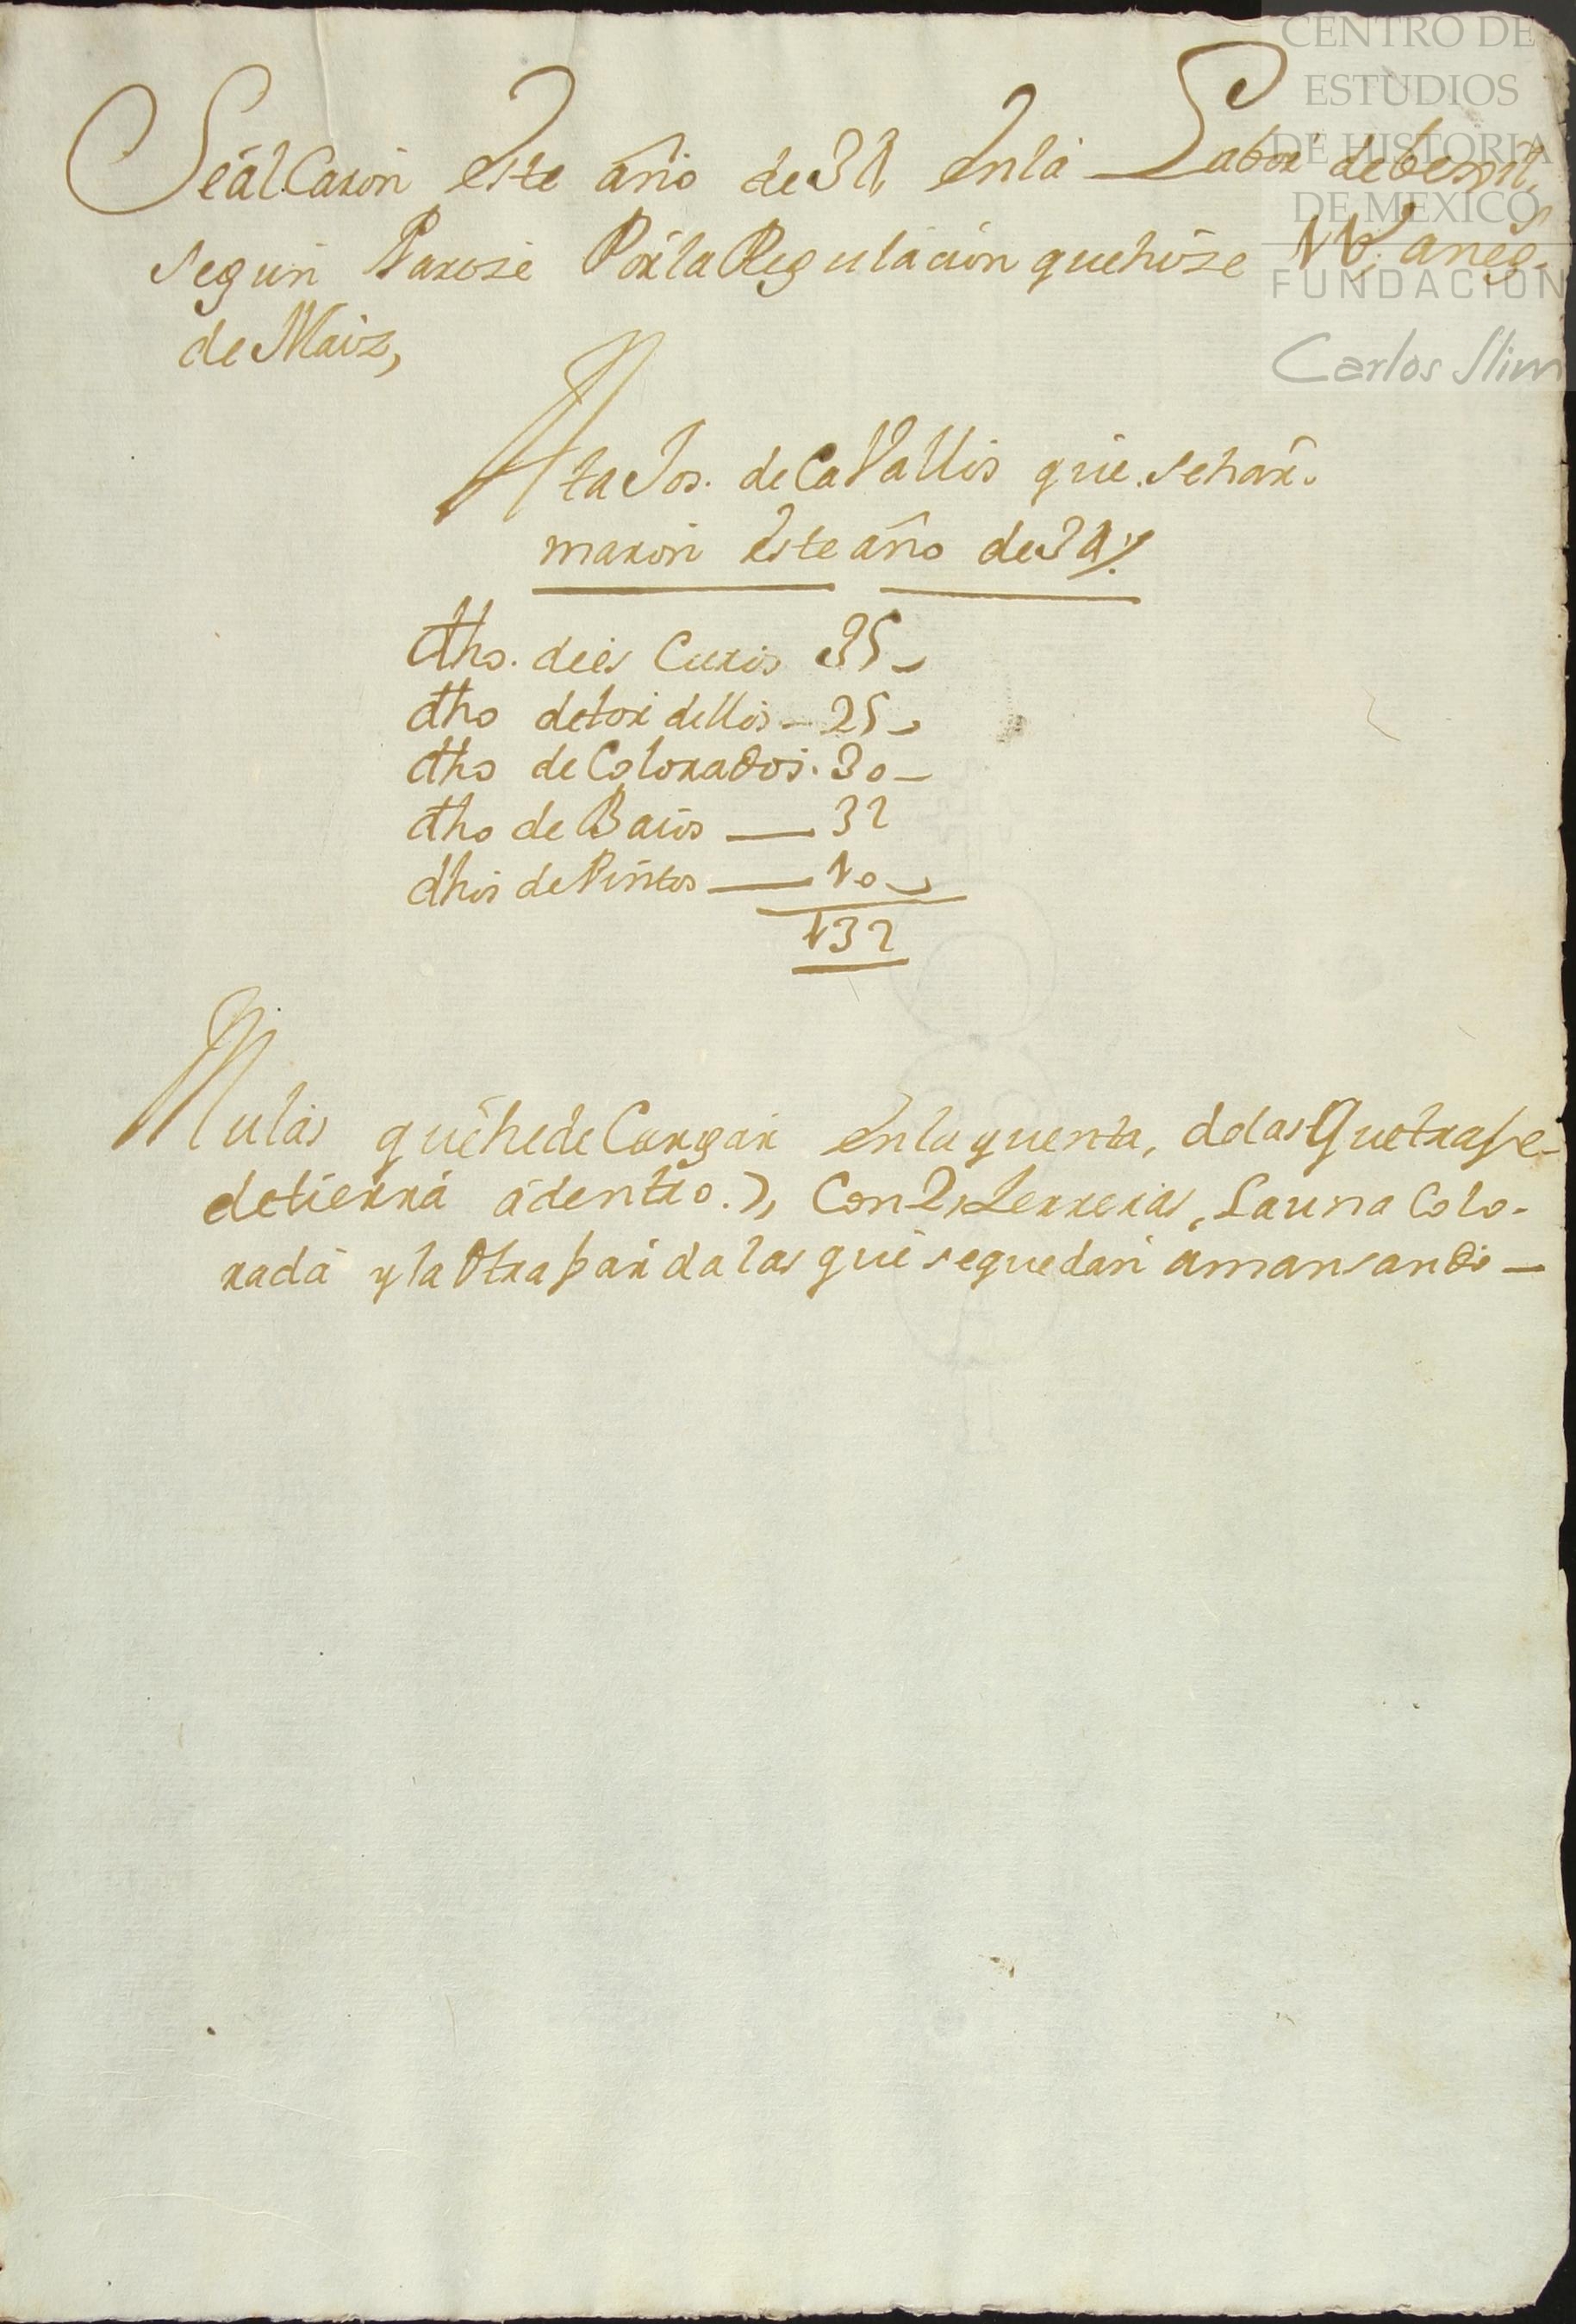 CENTRO DE
ESTUDIOS
DE HISTORIA
DE MEXICO
FUNDACION
Carlos Slim
Seálcaron este año de 31, en la Labor de
segun Parese Por la Regulacion que hise faneg.
de Maiz,
Ata Jos. de Cavallos que. se har.
maron este año de 31
dho. de Curos 35
dho de tordellos 25
dho de Colorados. 30
dho de Baios 32
dhos de Pintos 10
132
Mulas que he de Cargar en la quenta, de las Que traſe
de tierra adentro. Con 2, Herreras, La una Colo-
rada y la Otra parda las que se quedan amansando